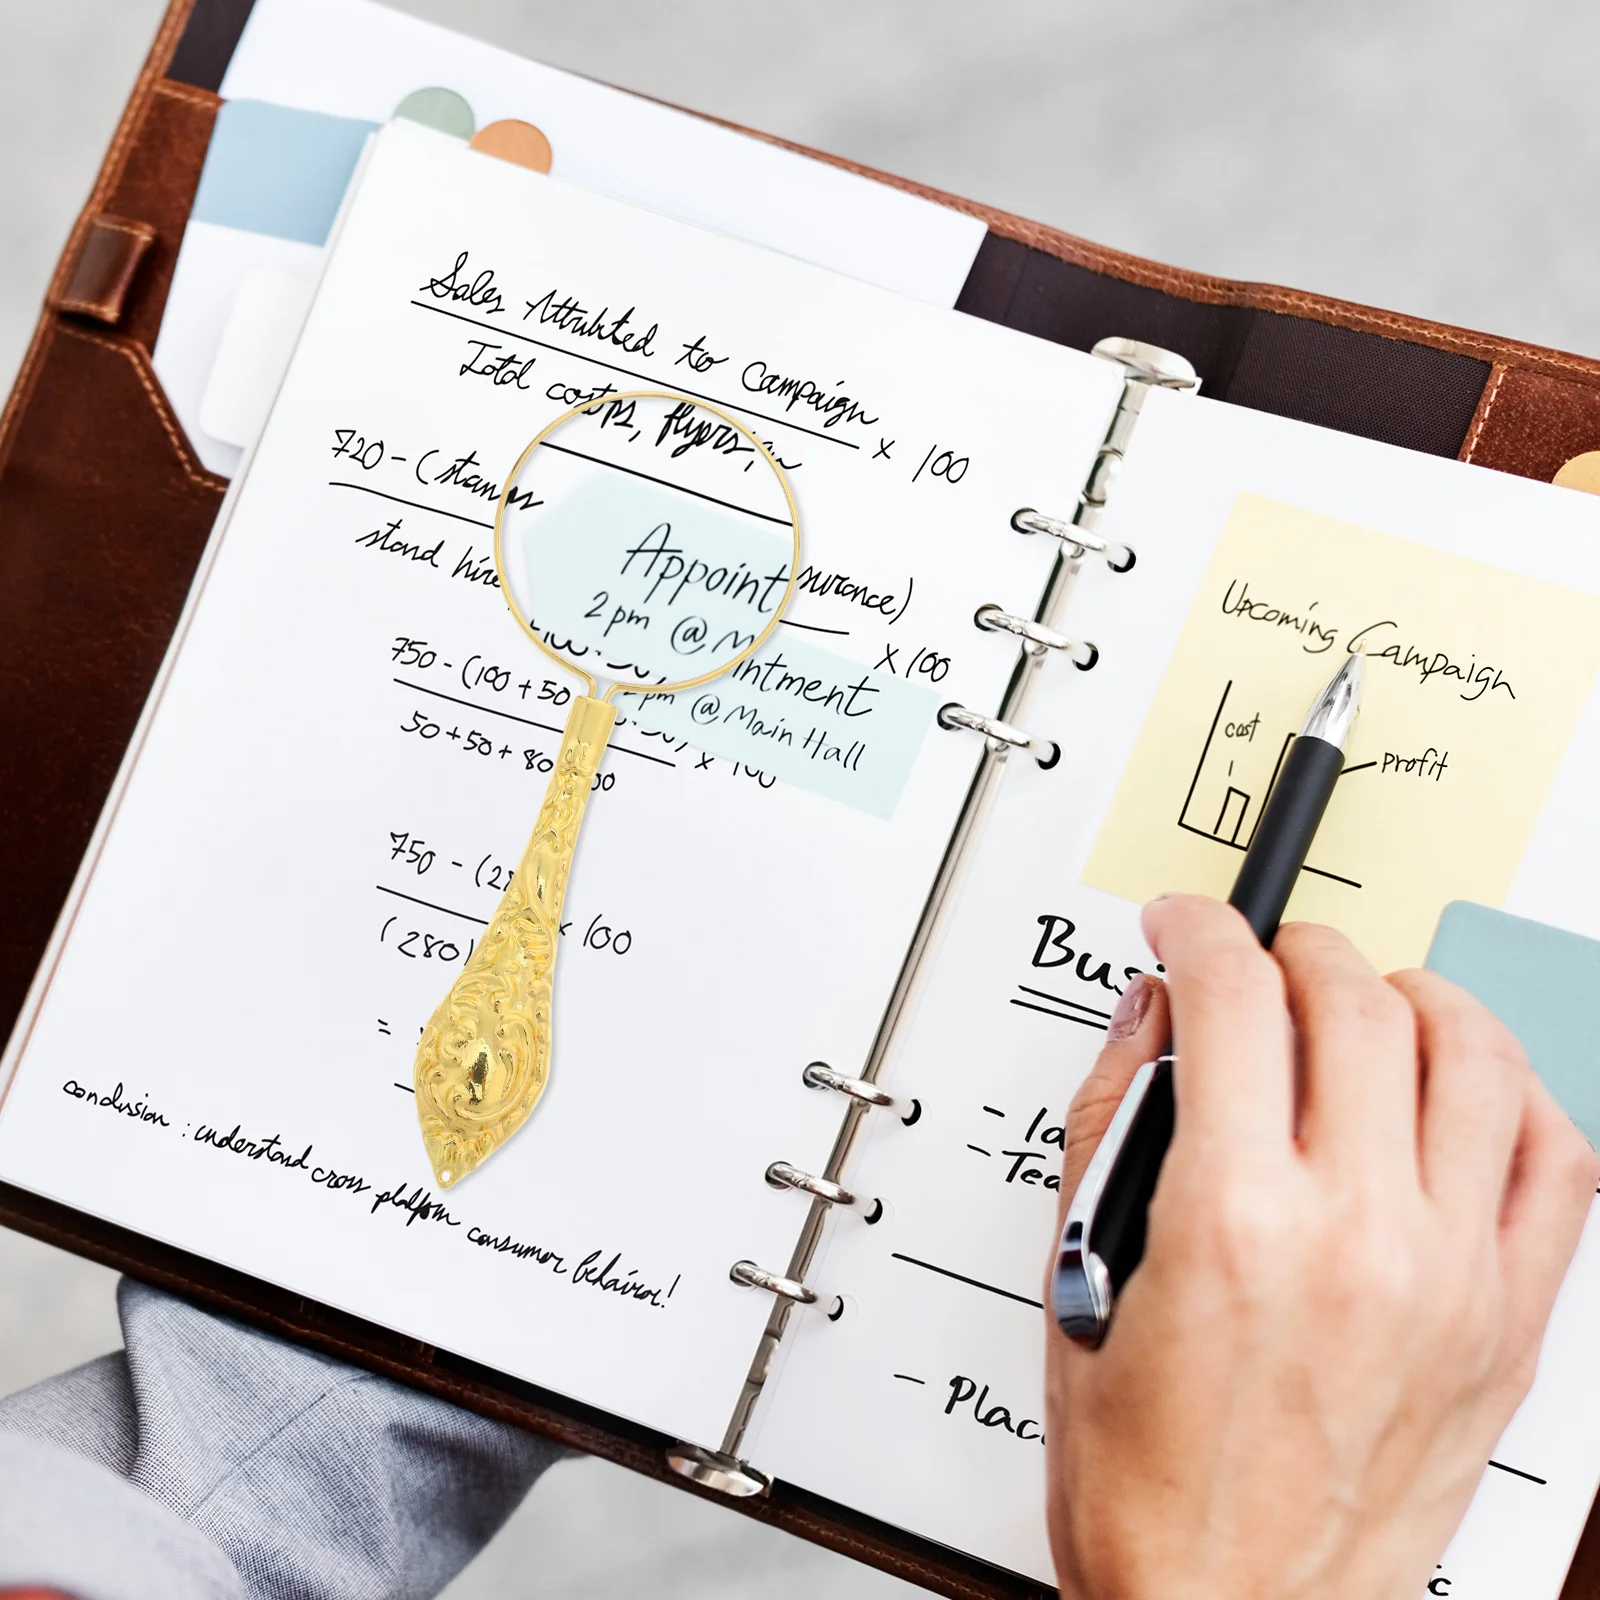 Sales Attributed to Campaign
Total costs
x 100
flyers,
720 - (stamps
stand hire
surance)
x 100
Appoint
2 pm @ M
intment
pm @ Main Hall
750 - (100 + 50
x 100
50 + 50 + 80
00
750 - (2
x 100
(280)
=
conclusion : understand cross platform consumer behavior!
Upcoming Campaign
cost
profit
Busi
- Ta
- Tea
- Plac